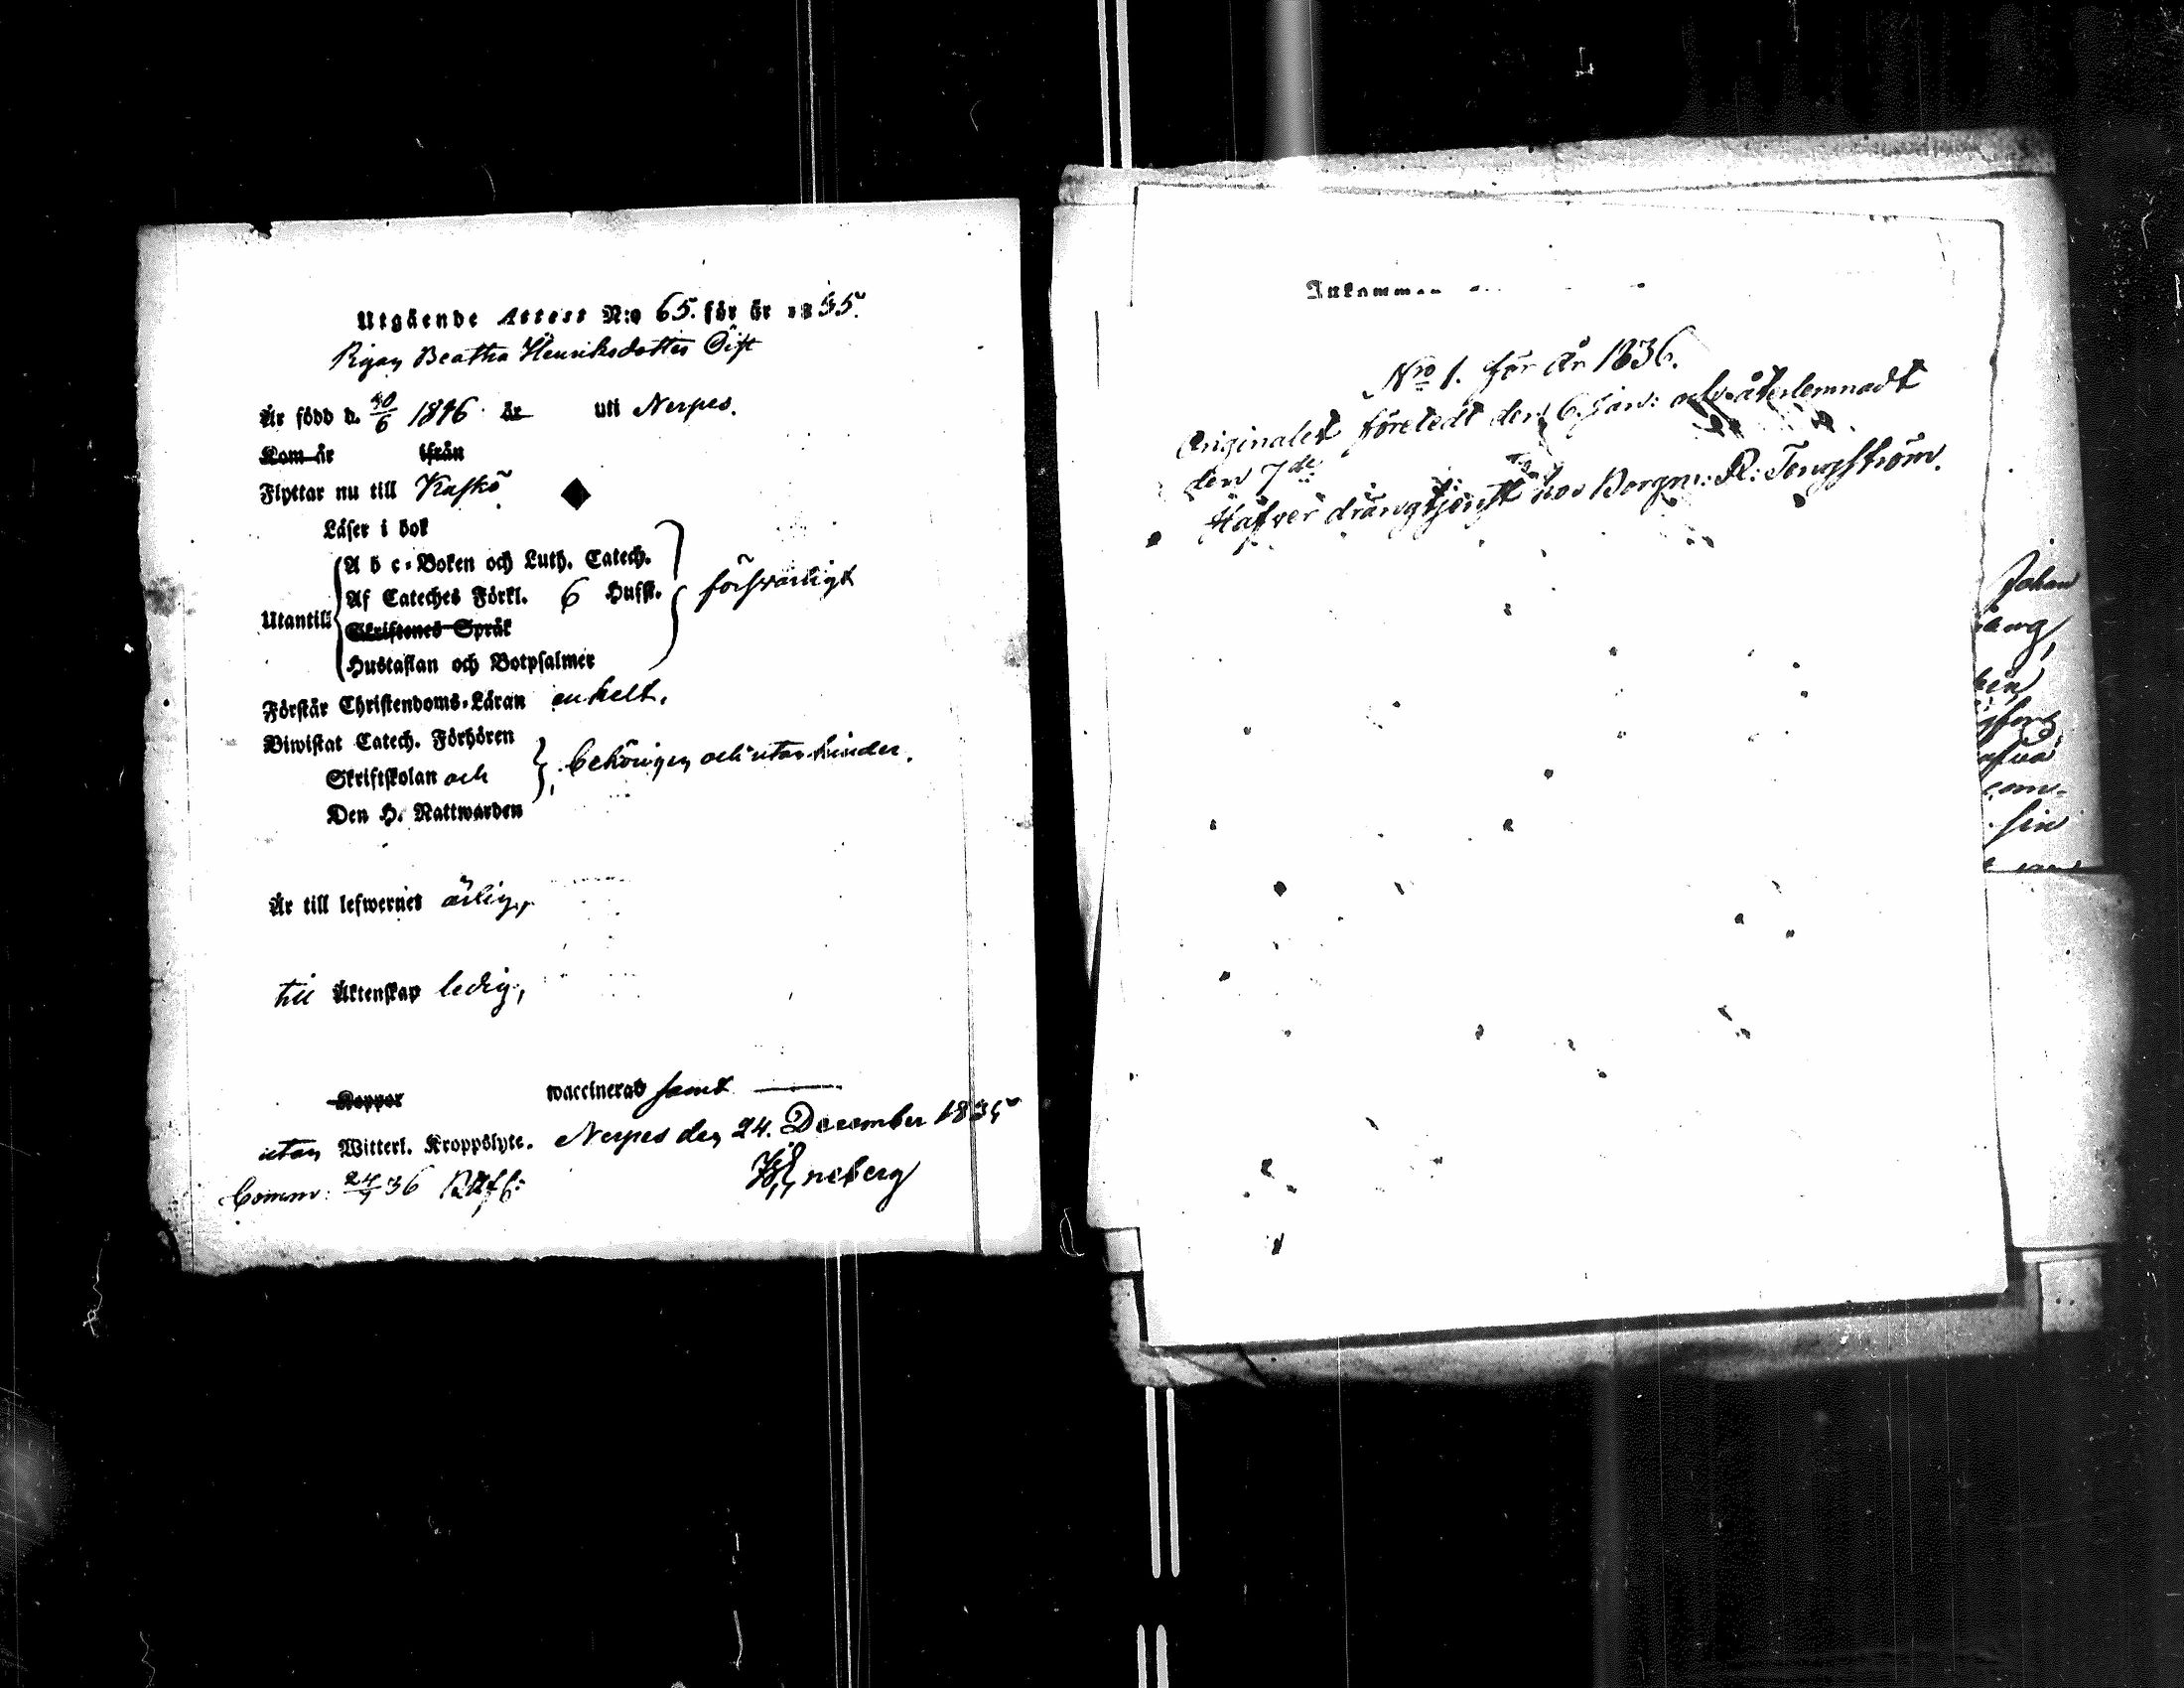 Utgående Attest N:o 65. för år 1835.
Pigan Beatha Henriksdotter Öist
Är född d. 30/6 1816. år uti Nerpes.
Kom år ifrån
Flyttar nu till Kaskö
Läser i bok
A b c-Boken och Luth. Catech.
Af Cateches Förkl. 6 Hufst. försvarligt
Utantill:
Skriftenes Språk
Hustaflan och Botpsalmer
Förstår Christendoms-Läran enkelt.
Biwistat Catech. Förhören
Skriftskolan och behörigen och utan hinder.
Den H. Nattwarden
Är till lefwernet ärlig,
till Äktenskap ledig,
Koppor waccinerad samt
utan Witterl. Kroppslyte. Nerpes den 24. December 1835
Comm: 24/1 36
Inkommen
Nro 1. för år 1836.
Originalet företedt den 6 Jan: och återlemnadt
den 7de
Hafver drängtjenst hos Borgm: R: Tengström.
Johan
sin